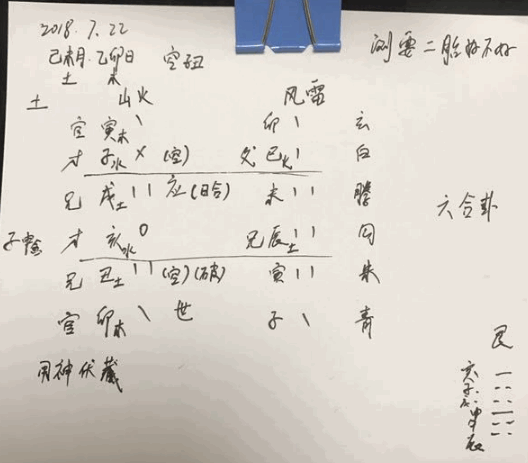 2018.7.22
己未月.乙卯日 空丑 测要二胎好不好
土 木
土 山火 风雷
官 寅木 、 卯 、 玄
才 子水 × (空) 父 巳火 、 白
兄 戌土 、、 应 (日合) 未 、、 螣
子申金 才 亥水 0 兄 辰土 、、 勾
兄 丑土 、、 (空)(破) 寅 、、 朱
官 卯木 、 世 子 、 青
六合卦
用神伏藏
艮